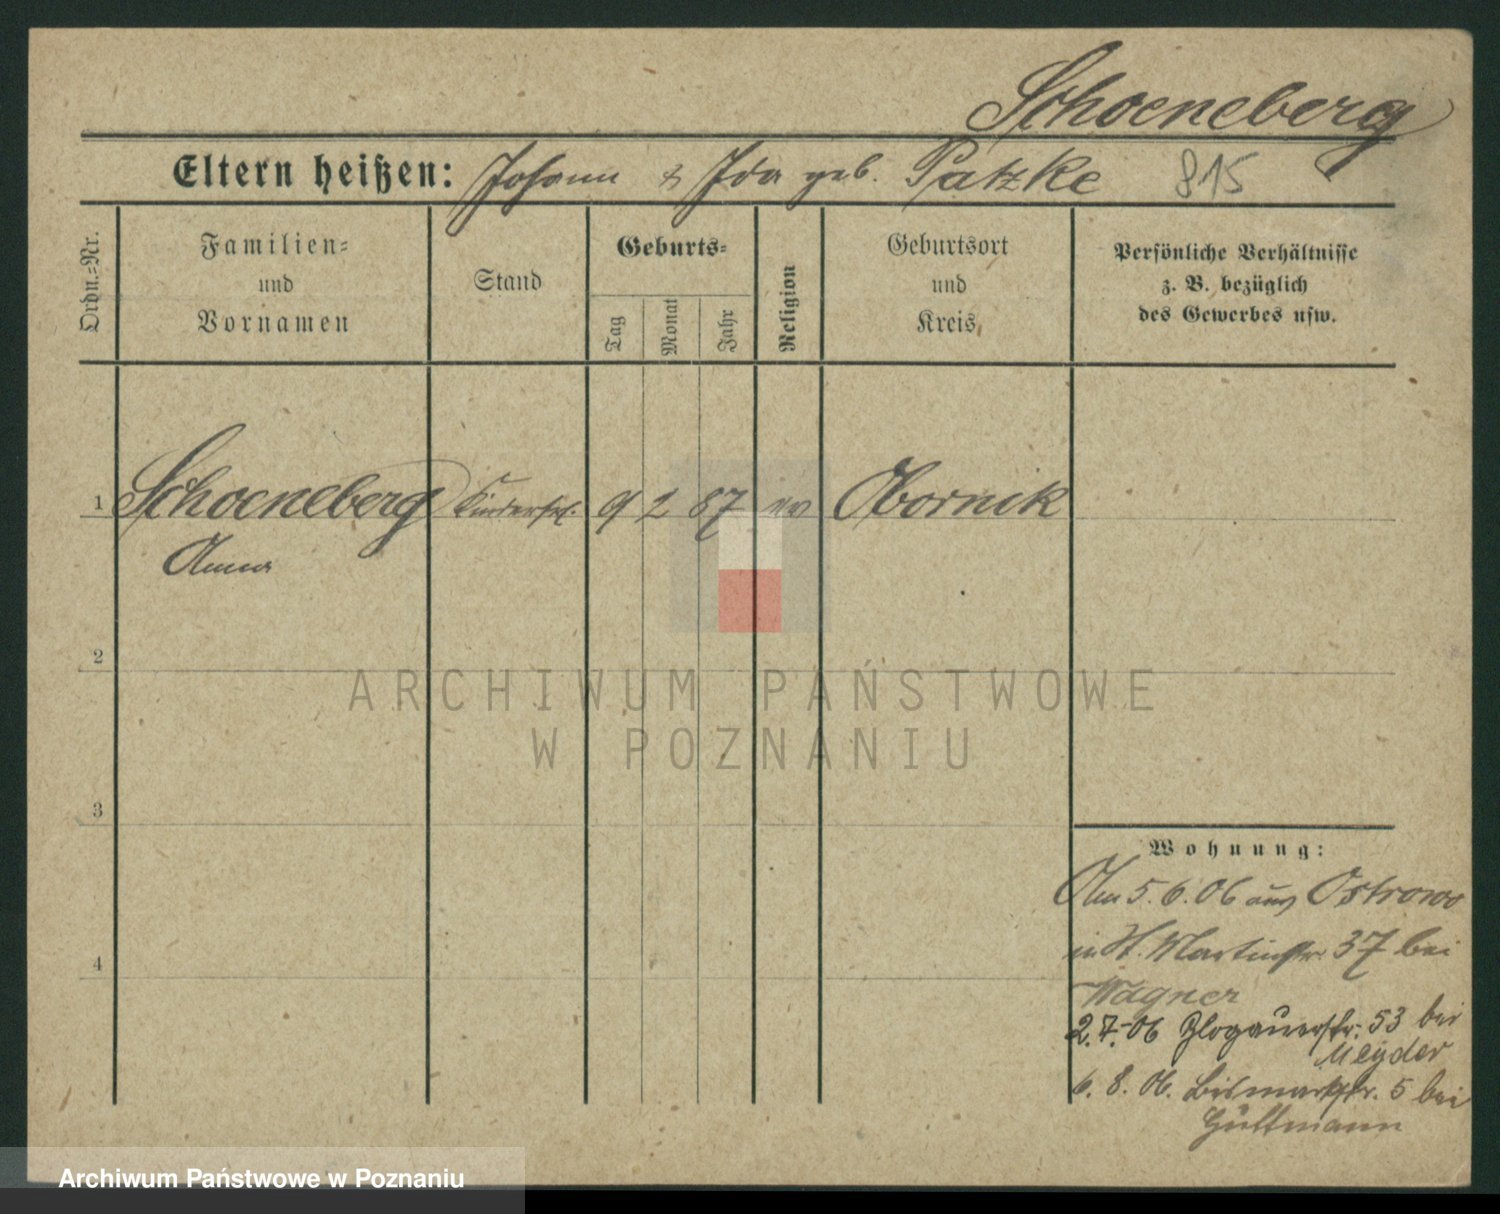 Schoeneberg
Eltern heißen: Johann & Ida geb. Patzke 815
Ordn.=Nr.
Familien=
und
Vornamen
Stand
Geburts=
Tag
Monat
Jahr
Religion
Geburtsort
und
Kreis
Persönliche Verhältnisse
z. B. bezüglich
des Gewerbes usw.
1 Schoeneberg 9 2 87 ev Obornik
Anna
2
3
4
Wohnung:
5. 6. 06 aus Ostrowo
in St. Martinstr. 37 bei
Wagner
2. 7. 06 Glogauerstr. 53 bei
Meyder
6. 8. 06. Bismarckstr. 5 bei
ARCHIWUM PAŃSTWOWE
W POZNANIU
Archiwum Państwowe w Poznaniu